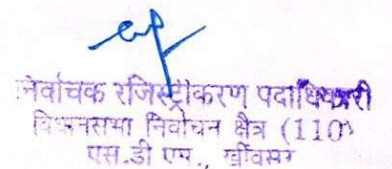 निर्वाचक रजिस्ट्रीकरण पदाधिकारी
विधानसभा निर्वाचन क्षेत्र (110)
एस.डी एम., खींवसर